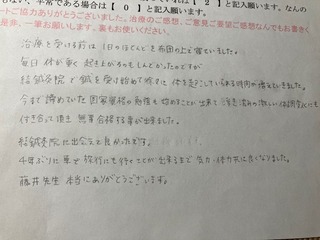 ない、非常である場合は【 2 】と記入願います。
である場合は【 0 】と記入願います。なんの
ートご協力ありがとうございました。治療のご感想、ご意見ご要望ご感想なんでもお書きく
是非、一筆お願いします、裏もお使いください。
治療を受ける前は1日のほとんどを布団の上で寝ていました。
毎日体が重く起き上がるのもしんどかったのですが
結鍼灸院で鍼を受け始めて徐々に体を起こしていられる時間が増えていきました。
今まで諦めていた国家資格の勉強も始めることが出来て浮き沈みの激しい体調変化にも
付き合って頂き無事合格する事が出来ました。
結鍼灸院に出会えて良かったです。
4年ぶりに車で旅行にも行くことが出来るまで気力・体力共に良くなりました。
藤井先生 本当にありがとうございます。